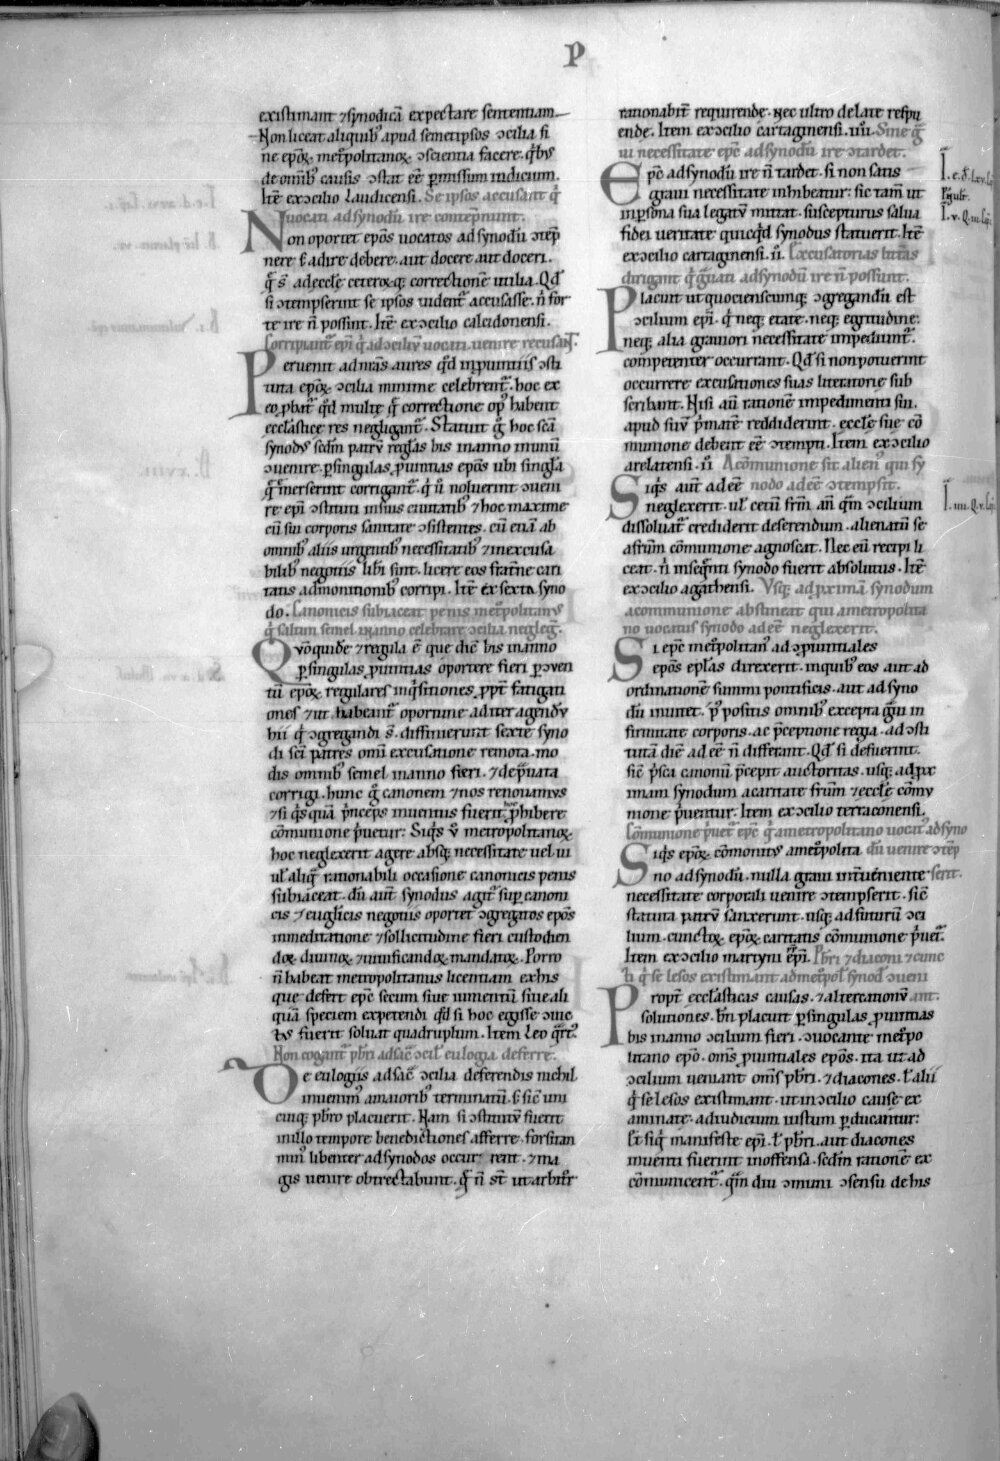 P
existimant ⁊ synodicā expectare sententiam
Non liceat aliquib; apud semetipsos ↄcilia si
ne epōꝝ metꝓpolitanoꝝ ↄscientia facere. q̇bus
de omīb; causis ↄstat eē ꝑmissum iudicium.
Itē ex ↄcilio Laudicensi. Se ipsos accusant q̇
uocati ad synodū ire contempnunt.
Non oportet ep̄os uocatos ad synodū ↄtēp
nere s; adire debere. aut docere aut doceri.
q̄ s̄t ad eccl̄e ceteroꝝq; correctionē utilia. Qd̄
si ↄtempserint se ipsos uident̄ accusasse. n̄ for
te ire n̄ possint. Itē ex ↄcilio calcidonensi.
Corripiant̄ ep̄i q̇ ad ↄciliū uocati uenire recusant̄.
Peruenit ad nr̄as aures qd̄ in ꝓuintiis ↄsti
tuta ep̄oꝝ ↄcilia minime celebrent̄. hoc ex
eo ꝓbat̄ qd̄ multe q̄ correctione op; habent
eccl̄astice res neglegant̄. Statuit g̊ hoc sc̄a
synodus sedm̄ patrū regl̄as bis in anno in unū
ↄuenire. ꝑ singulas ꝓuintias ep̄os ubi singl̄a
q̄ emerserint corrigant̄. q̇ ū noluerint ↄueni
re ep̄i ↄstituti in suis ciuitatib; ⁊ hoc maxime
cū sui corporis sanitate ↄsistentes. cū etiā ab
omnib; aliis urgentib; necessitatib; ⁊ inexcusa
bilib; negotiis liberi sint. licere eos fratn̄e cari
tatis admonitionib; corripi. Itē ex sexta syno
do. Canonicis subiaceat penis metꝓpolitanus
q̇ saltim semel in anno celebrare ↄcilia negleḡ.
Quōquidē ⁊ regula ē que dic̄ bis in anno
ꝑ singulas ꝓuintias oportere fieri ꝑ ↄuen
tū ep̄oꝝ regulares inq̇sitiones. ꝓpt̄ fatigati
ones ⁊ ut habeant̄ oportune ad iter agendū
hii q̇ ↄgregandi s̄t. diffinierunt sexte syno
di sc̄i patres omī excusatione remota. mo
dis omnib; semel in anno fieri. ⁊ deprauata
corrigi. hunc g̊ canonem ⁊ nos renouamus
⁊ si q̇squā princeps inuentus fuerit hoc ꝓhibere
cōmunione priuetur: Siq̇s ū metropolitanoꝝ
hoc neglexerit agere absq; necessitate uel ui
ul̄ aliq̄ rationabili occasione canonicis penis
subiaceat. dū aut̄ synodus agit̄ sup̄ canoni
cis ⁊ euglicis negotiis oportet ↄgregatos ep̄os
in meditatione ⁊ sollicitudine fieri custodien
doꝝ diuinoꝝ ⁊ uiuificandoꝝ mandatoꝝ. Porro
n̄ habeat metropolitanus licentiam ex his
que defert ep̄c secum siue iumentū siue ali
quā speciem expetendi. qd̄ si hoc egisse ↄuic
tus fuerit soluat quadruplum. Item Leo q̄rt̄.
Non cogant̄ pb̄ri ad sac̄ ↄcil̄ eulogia deferre.
De eulogiis ad sac̄ ↄcilia deferendis nichil
inuenim; a maiorib; terminatū. s; sic̄ uni
cuiq; pb̄ro placuerit. Nam si ↄstitutū fuerit
in illo tempore benedictiones afferre. forsitan
min; libenter ad synodos occurrent. ⁊ ma
gis uenire obtrectabunt. q̄ n̄ s̄t ut arbitr̄
rationabilit̄ requirende. Nec ultro delate respu
ende. Item ex ↄcilio cartaginensi. iiii. Sine g̃
ui necessitate ep̄c ad synodū ire ↄtardet.
Ep̄c ad synodū ire n̄ tardet. si non satis
graui necessitate inhibeatur: sic tam̄ ut
in ꝑsona sua legatū mittat. suscepturus salua
fidei ueritate quicq̇d synodus statuerit. Itē
ex ↄcilio cartaginensi. ii. Excusatorias litt̄as
dirigant q̇ g̃uati ad synodū ire n̄ possunt.
Placuit ut quotienscumq; ↄgregandū est
ↄcilium ep̄i. q̇ neq; etate. neq; egritudine:
neq; alia grauiori necessitate impediunt̄.
competenter occurrant. Qd̄ si non potuerint
occurrere excusationes suas litteratorie sub
scribant. Nisi aū rationē impedimenti sui.
apud suū p̄matē reddiderint. eccl̄e sue cō
munione debent eē ↄtempti. Item ex ↄcilio
arelatensi. ii A cōmunione sit alien; qui sy
nodo adeē ↄtempsit.
Siq̇s aut̄ adeē
neglexerit. ul̄ cetū frm̄ an̄ q̄m ↄcilium
dissoluat̄ crediderit deserendum. alienatū se
a frūm cōmunione agnoscat. Nec eū recipi li
ceat. n̄ in seq̄nti synodo fuerit absolutus. Itē
ex ↄcilio agathensi. Usq; ad ꝓximā synodum
a communione abstineat qui a metropolita
no uocatus synodo adeē neglexerit.
Si ep̄c metꝓpolitan; ad ↄꝓuintiales
ep̄os ep̄las direxerit. in quib; eos aut ad
ordinationē summi pontificis. aut ad syno
dū inuitet. p̄positis omnib; excepta g̃ui in
firmitate corporis. ac p̄ceptione regia. ad ↄsti
tutā diē adeē n̄ differant. Qd̄ si defuerint.
sic̄ p̄sca canonū p̄cepit auctoritas. usq; ad ꝓx
imam synodum a caritate frūm ⁊ eccl̄e cōmu
nione p̄uentur. Item ex ↄcilio terraconensi.
Cōmunione p̄uet̄ ep̄c q̇ a metropolitano uocat; ad syno
dū uenire ↄtēp
serit.
Siq̇s ep̄oꝝ cōmonitus a metꝓpolita
no ad synodū. nulla graui int̄ueniente
necessitate corporali uenire ↄtempserit. sic̄
statuta patrū sanxerunt. usq; ad futurū ↄci
lium. cunctoꝝ ep̄oꝝ caritatis cōmunione p̄uet̄.
Item ex ↄcilio martyni ep̄i. Pb̄ri ⁊ diaconi ⁊ cunc
ti q̇ se lesos existimant ad metꝓpol̄ synod̄ ↄueni
ant.
Propt̄ eccl̄asticas causas. ⁊ altercationū
solutiones. bn̄ placuit ꝑ singulas ꝓuintias
bis in anno ↄcilium fieri. ↄuocante metꝓpo
litano ep̄o. om̄s ꝓuintiales ep̄os. ita ut ad
ↄcilium ueniant om̄s pb̄ri. ⁊ diacones. ul̄ alii
q̇ se lesos existimant. ut in ↄcilio cause ex
aminate. ad iudicium iustum ꝑducantur:
Et siq̇ manifeste ep̄i. ul̄ pb̄ri. aut diacones
inuenti fuerint in offensa. sedm̄ rationē ex
cōmunicent̄. q̄m diu ↄmuni ↄsensu de his